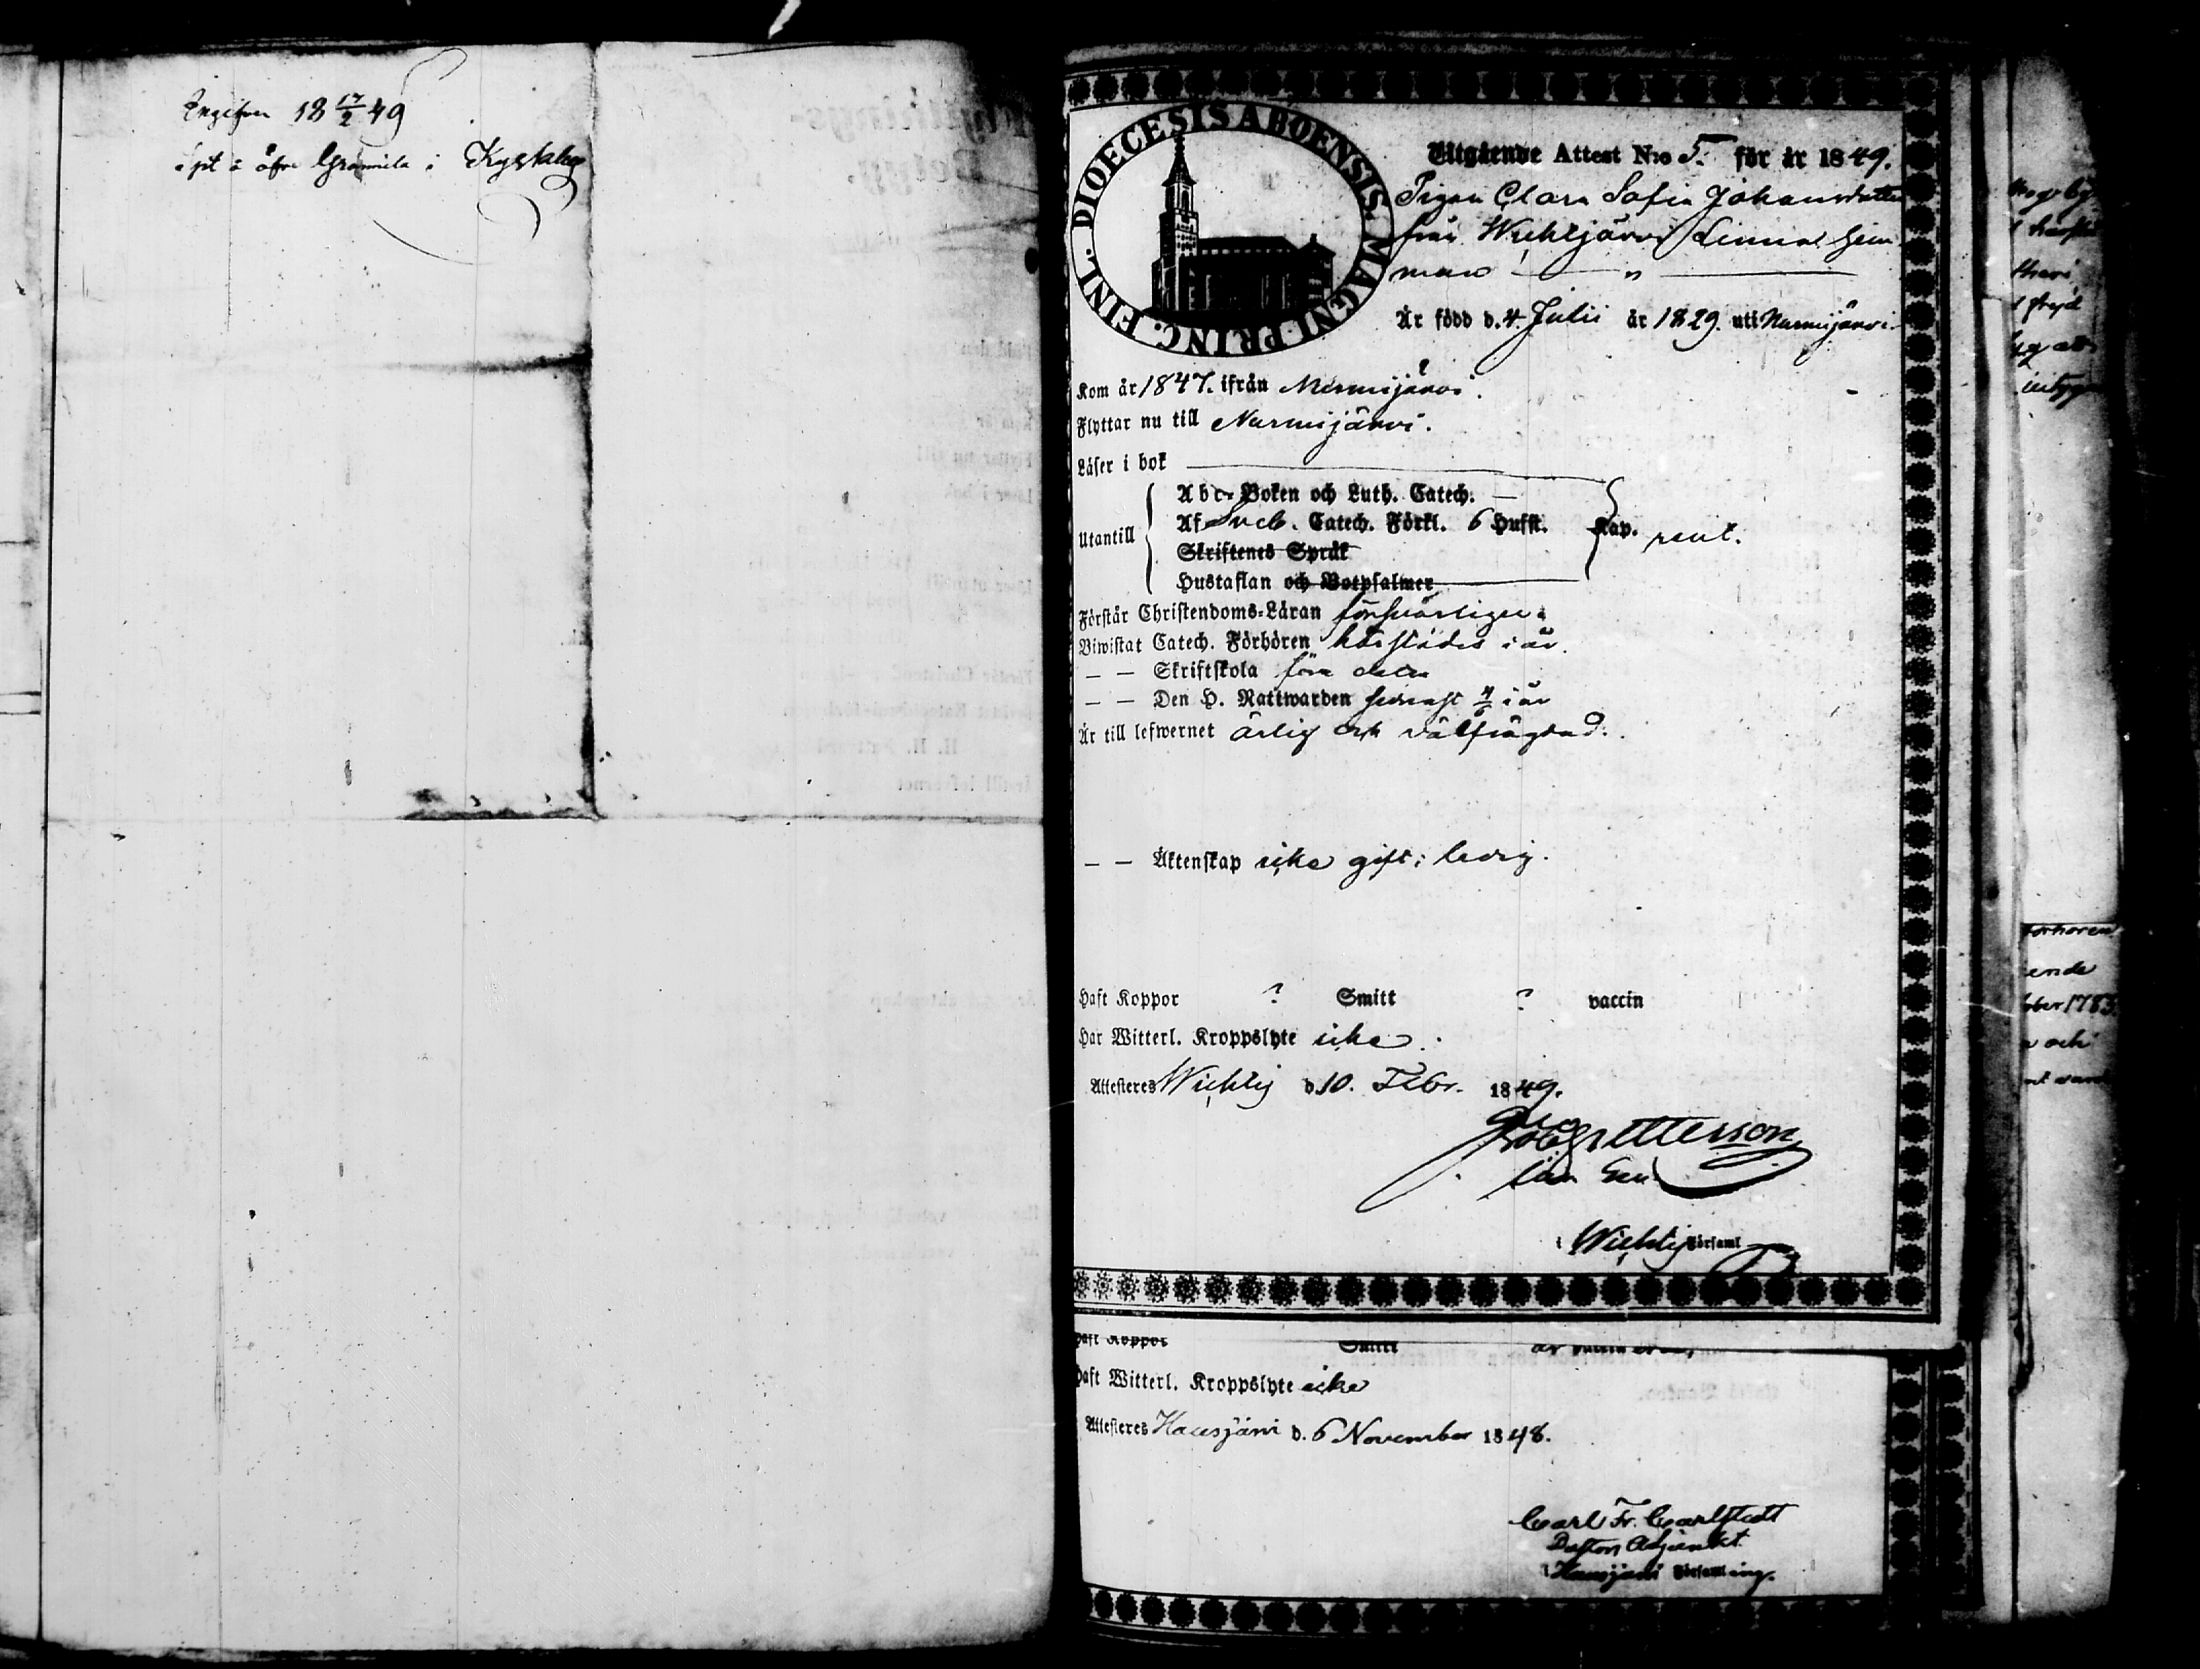 18 17/2 49
öfre i Kytäläx
FINL. DIOECESIS ABOENSIS. MAGNI PRINC.
Utgående Attest N:o 5. för år 1849.
Pigan Clara Sofia Johansdotter
från Wichtjärvi hem
man — " —
Är född d. 4. Julii år 1829. uti Nurmijärvi.
Kom år 1847. ifrån Nurmijärvi.
Flyttar nu till Nurmijärvi.
Läser i bok
Utantill
Abc-Boken och Luth. Catech. —
Af Sveb. Catech. Förkl. 6 Hufst.
Skriftenes Språk
Hustaflan och Botpsalmer
Kap. rent.
Förstår Christendoms-Läran försvarligen.
Biwistat Catech. Förhören härstädes i år.
— — Skriftskola före detta
— — Den H. Nattwarden senast i år
Är till lefwernet ärlig och välfrägdad.
— — Äktenskap icke gift; ledig.
Haft Koppor ? Smitt ? vaccin
Har Witterl. Kroppslyte icke.
Attesteres Wichtis d. 10. Febr. 1849.
Petterson
i Wichtis Församl
Haft Koppor Smitt
Haft Witterl. Kroppslyte icke
Attesteres Hausjärvi d. 6 November 1848.
Carl Fr. Carlstedt
Pastors Adjunkt
i Hausjärvi Församling.
förhören
ende
ober 1783
och